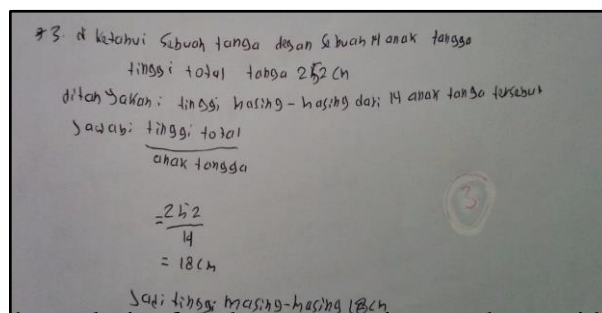 3. di ketahui sebuah tanga degan sebuah 14 anak tangga
tinggi total tanga 252 cm
ditanyakan: tinggi masing-masing dari 14 anak tanga tersebut
Jawab: tinggi total
anak tangga
= 252
14
= 18 cm
Jadi tinggi masing-masing 18 cm
3